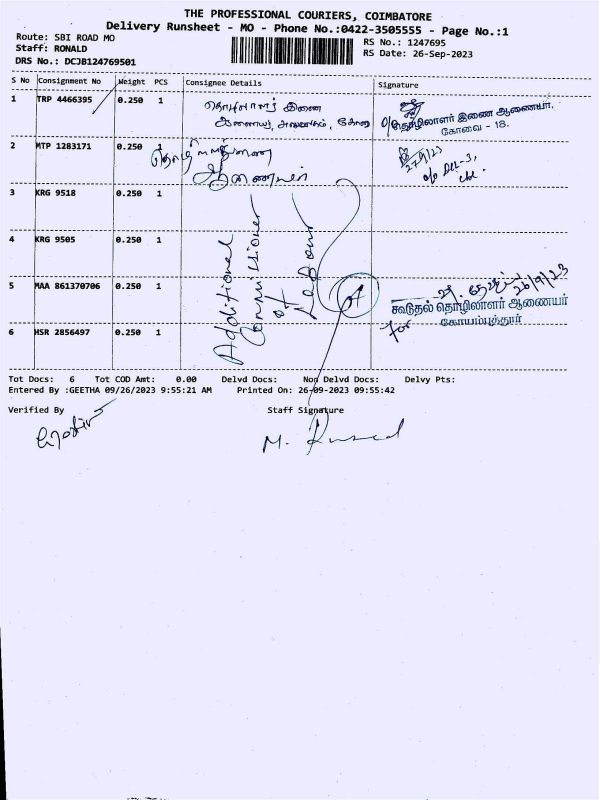 THE PROFESSIONAL COURIERS, COIMBATORE
Delivery Runsheet - MO - Phone No.:0422-3505555 - Page No.:1
Route: SBI ROAD MO
Staff: RONALD
DRS No.: DCJB124769501
RS No.: 1247695
RS Date: 26-Sep-2023
S No Consignment No Weight PCS Consignee Details Signature
1 TRP 4466395 0.250 1
தொழிலாளர் இணை
தொழிலாளர் இணை ஆணையர்,
கோவை - 18.
2 MTP 1283171 0.250 1
ஆணையர்
3 KRG 9518 0.250 1
4 KRG 9505 0.250 1
Additional
Commissioner
of
Labour
5 MAA 861370706 0.250 1
26/9/23
கூடுதல் தொழிலாளர் ஆணையர்
for கோயம்புத்தூர்
6 HSR 2856497 0.250 1
Tot Docs: 6 Tot COD Amt: 0.00 Delvd Docs: Non Delvd Docs: Delvy Pts:
Entered By :GEETHA 09/26/2023 9:55:21 AM Printed On: 26-09-2023 09:55:42
Verified By Staff Signature